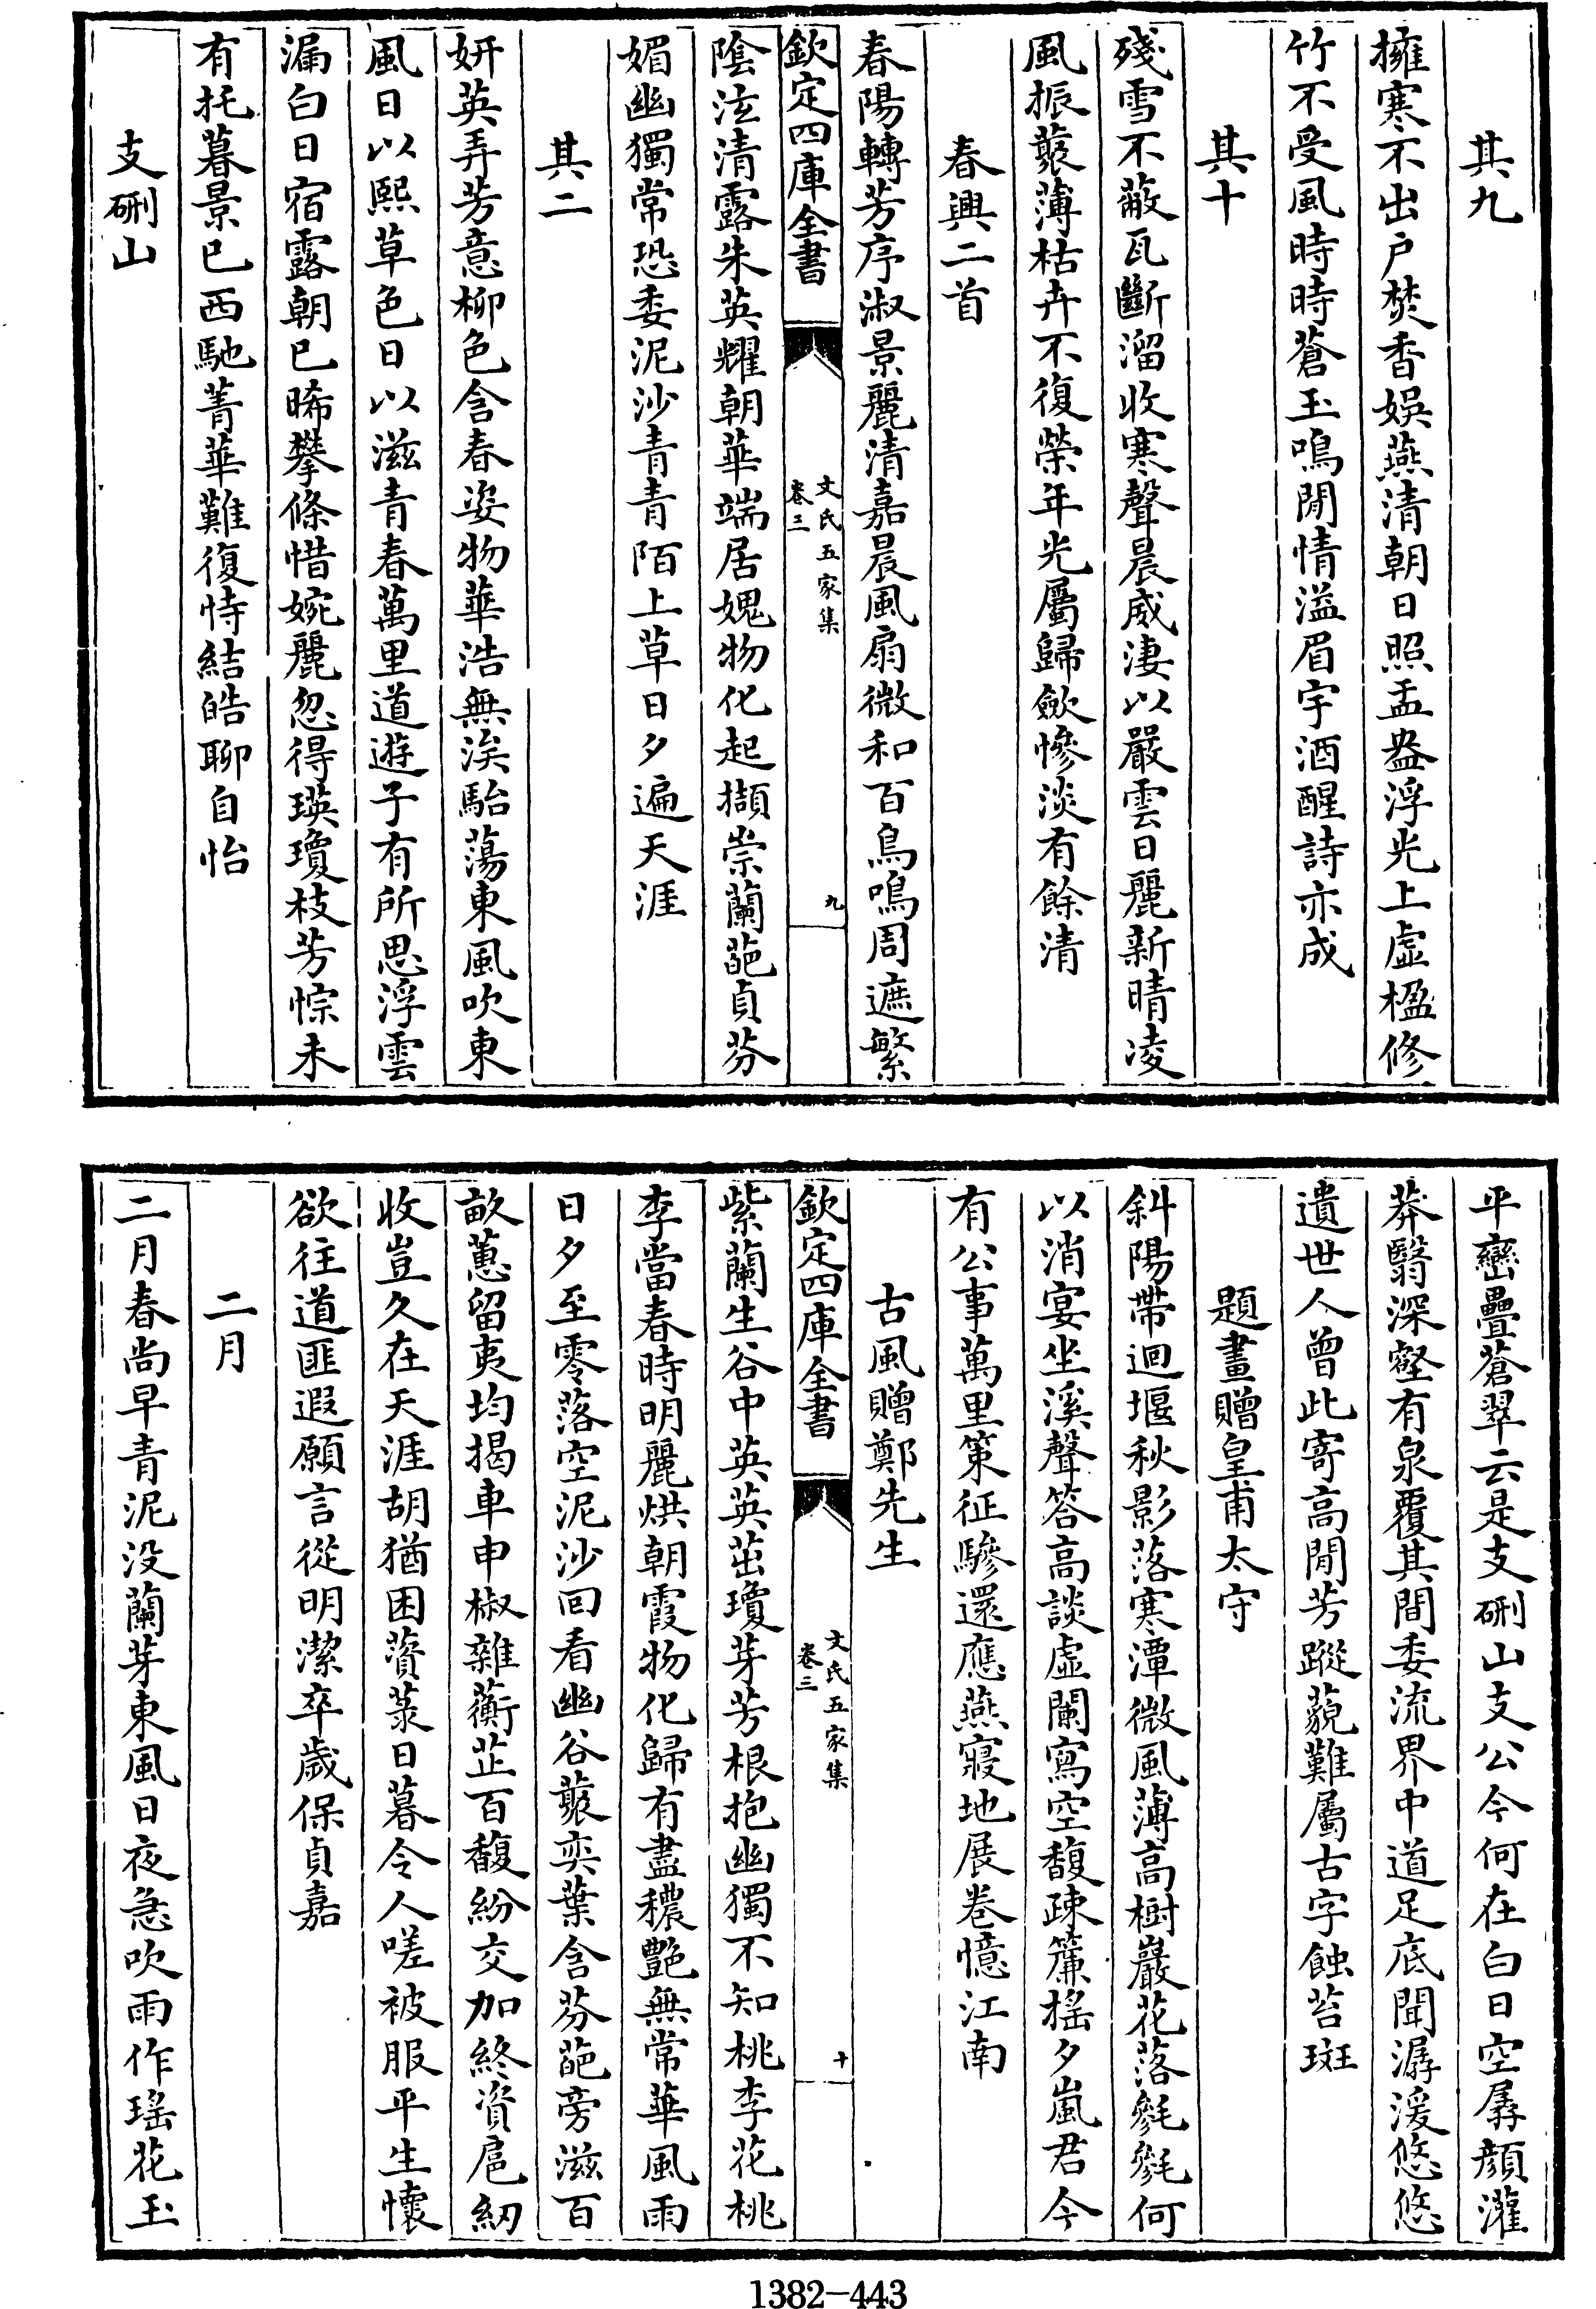 其九
擁寒不出戶焚香娛燕清朝日照盂盎浮光上虛楹修
竹不受風時時蒼玉鳴閒情溢眉宇酒醒詩亦成
其十
殘雪不蔽瓦斷溜收寒聲晨威淒以嚴雲日麗新晴凌
風振藂薄枯卉不復榮年光屬歸歛慘淡有餘清
春興二首
春陽轉芳序淑景麗清嘉晨風扇微和百鳥鳴周遮繁
欽定四庫全書
文氏五家集
卷三
九
陰泫清露朱英耀朝華端居媿物化起擷崇蘭葩貞芬
媚幽獨常恐委泥沙青青陌上草日夕遍天涯
其二
妍英弄芳意柳色含春姿物華浩無涘駘蕩東風吹東
風日以熙草色日以滋青春萬里道遊子有所思浮雲
漏白日宿露朝已晞攀條惜婉麗忽得瑛瓊枝芳悰未
有托暮景已西馳菁華難復恃結皓聊自怡
支硎山
平巒疊蒼翠云是支硎山支公今何在白日空孱顏灌
莽翳深壑有泉覆其間委流界中道足底聞潺湲悠悠
遺世人曾此寄高閒芳蹤藐難屬古字蝕苔斑
題畫贈皇甫太守
斜陽帶迴堰秋影落寒潭微風薄高樹巖花落毿毿何
以消宴坐溪聲答高談虛闌寫空馥疎簾搖夕嵐君今
有公事萬里策征驂還應燕寢地展卷憶江南
古風贈鄭先生
欽定四庫全書
文氏五家集
卷三
十
紫蘭生谷中英英茁瓊芽芳根抱幽獨不知桃李花桃
李當春時明麗烘朝霞物化歸有盡穠艷無常華風雨
日夕至零落空泥沙回看幽谷藂奕葉含芬葩旁滋百
畝蕙留夷均揭車申椒雜蘅芷百馥紛交加終資扈紉
收豈久在天涯胡猶困薋菉日暮令人嗟被服平生懷
欲往道匪遐願言從明潔卒歲保貞嘉
二月
二月春尚早青泥没蘭芽東風日夜急吹雨作瑤花玉
1382-443